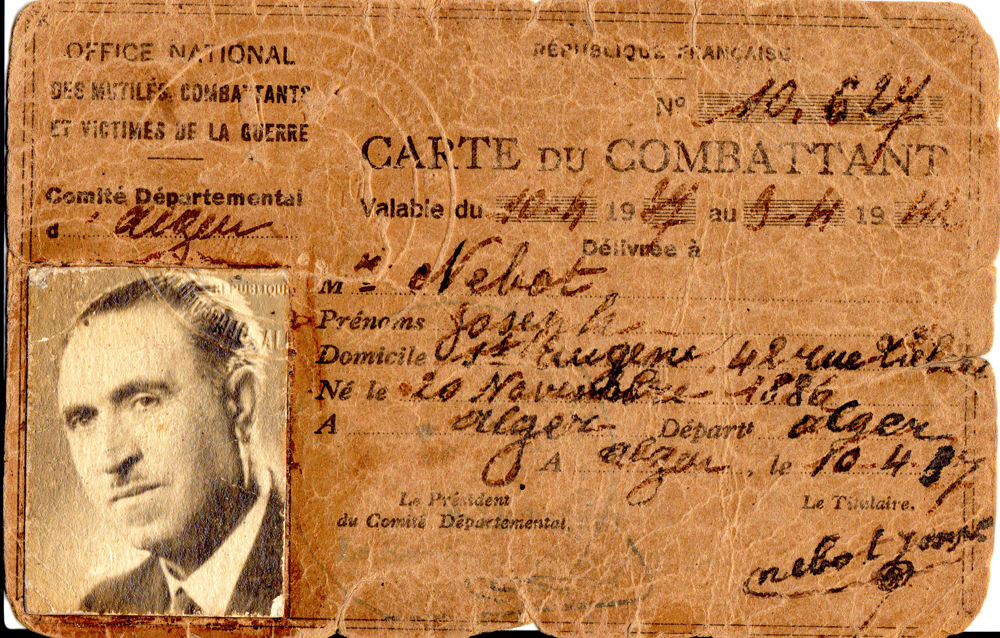 OFFICE NATIONAL
DES MUTILÉS, COMBATTANTS
ET VICTIMES DE LA GUERRE
Comité Départemental
d'alger
RÉPUBLIQUE FRANÇAISE
N° 10.627
CARTE DU COMBATTANT
Valable du 10-4 1937 au 9-4 1942
Délivrée à
Mr Nebot
Prénoms Joseph
Domicile St Eugene, 42 rue
Né le 20 Novembre 1886
A alger Départt alger
A alger, le 10-4-37
Le Président
du Comité Départemental,
Le Titulaire,
nebot
RÉPUBLIQUE